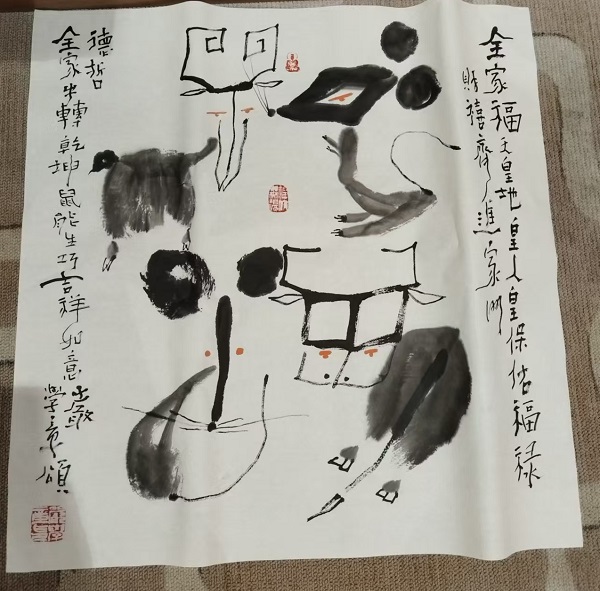 全家福天皇地皇人皇保佑福禄
財禧齊進家門
德哲
全家牛轉乾坤鼠能生巧吉祥如意
學彥頌